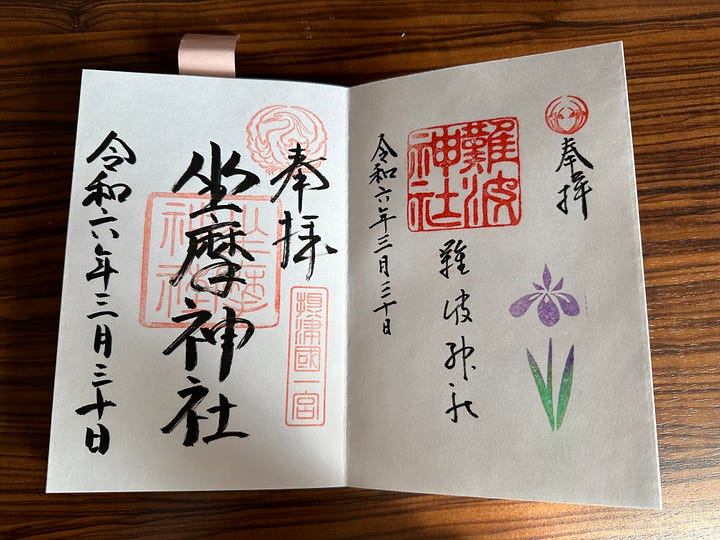 奉拝
難波
神社
難波神社
令和六年三月三十日
奉拝
摂津國一宮
坐摩神社
坐摩
神社
令和六年三月三十日